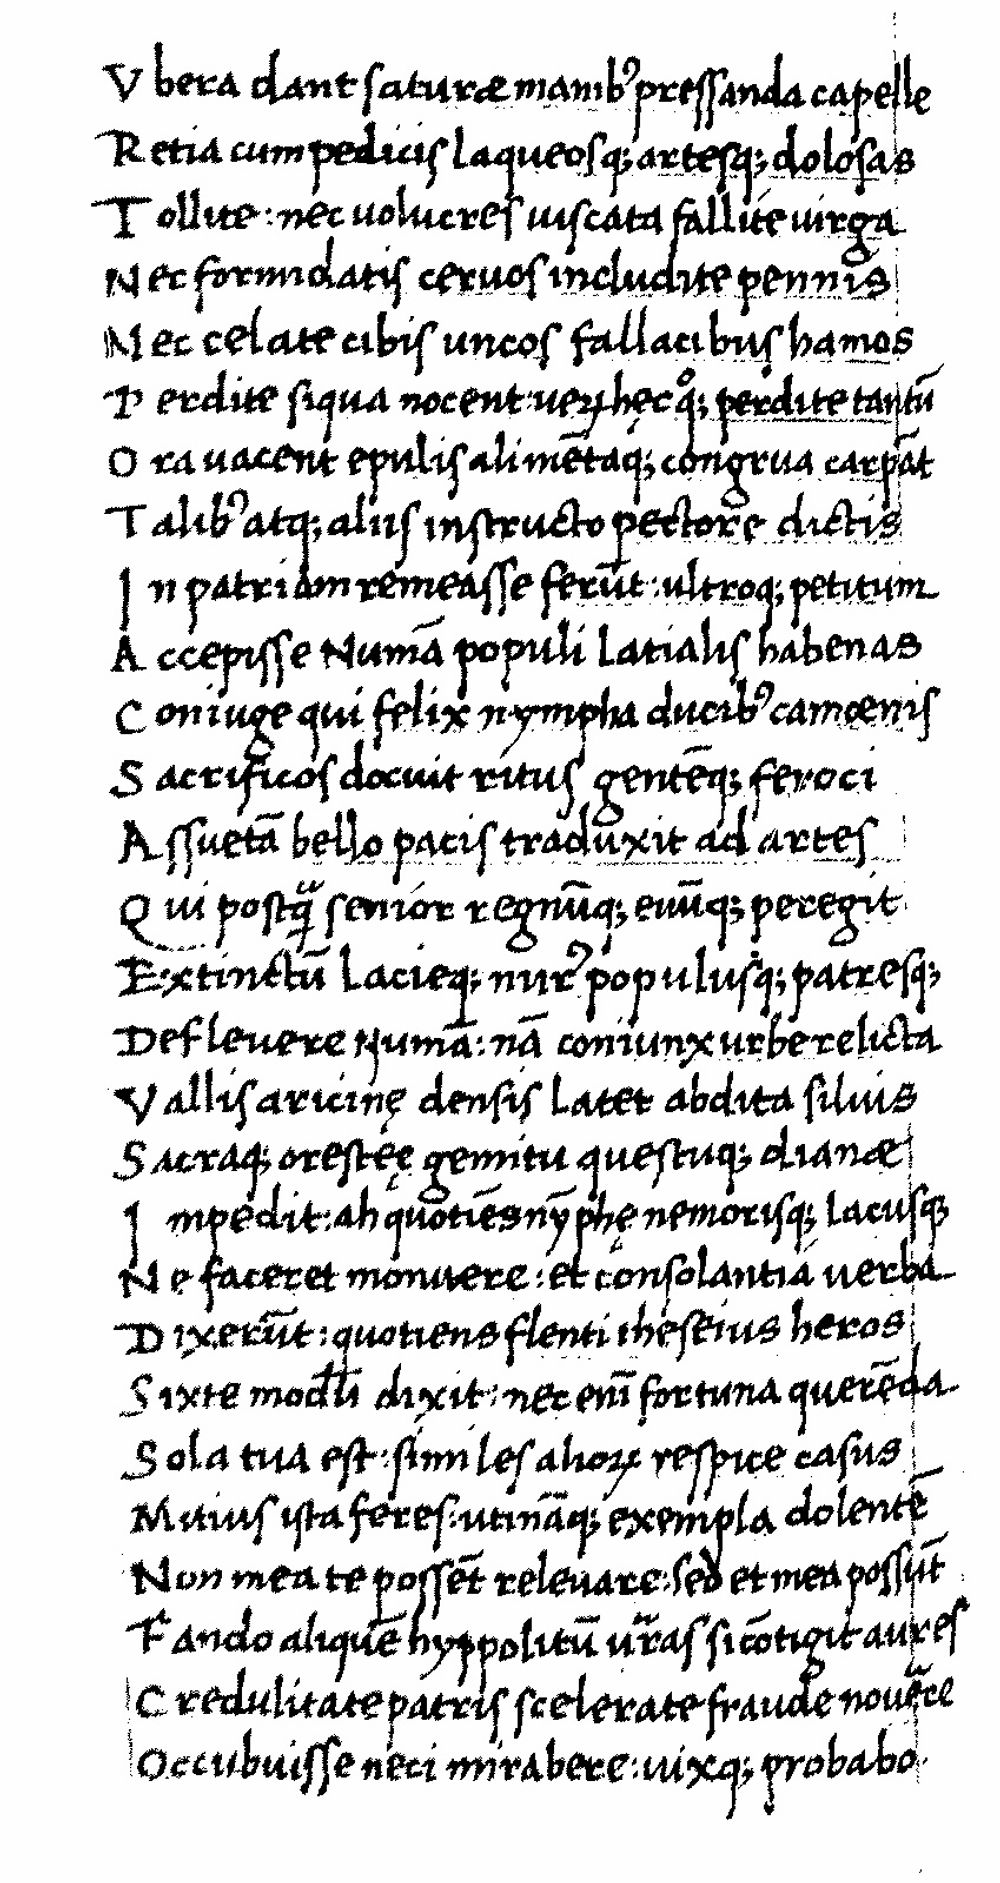 V bera dant saturæ manibꝰ pressanda capelle
R etia cum pedicis laqueosq; artesq; dolosas
T ollite : nec uolucres uiscata fallite uirga
N ec formidatis ceruos includite pennis
N ec celate cibis uncos fallacibus hamos
P erdite siqua nocent : ueꝝ hęc qͦq; perdite tantū
O ra uacent epulis alimētaq; congrua carpāt
T alibꝰ atq; aliis instructo pectore dictis
I n patriam remeasse ferūt : ultroq; petitum
A ccepisse Numā populi latialis habenas
C oniuge qui felix nympha ducibꝰ camœnis
S acrificos docuit ritus gentēq; feroci
A ssuetā bello pacis traduxit ad artes
Q ui postꝗᵃ senior regnūq; euūq; peregit
E xtinctū lacieq; nurꝰ populusq; patresq;
Defleuere Numā : nā coniunx urbe relicta
V allis aricinę densis latet abdita siluis
S acraq; orestęę gemitu questuq; dianæ
I mpedit : ah quotiēs nȳphę nemorisq; lacusq;
N e faceret monuere : et consolantia uerba
D ixerūt : quotiens flenti theseius heros
S ixte modū dixit : nec enī fortuna querēda
S ola tua est : similes alioꝝ respice casus
Mitius ista feres : utināq; exempla dolentē
Non mea te possēt releuare : sed et mea possūt
F ando aliquē hyppolitū ur̄as si cōtigit aures
C redulitate patris scelerate fraude nouērce
Occubuisse neci mirabere : uixq; probabo.